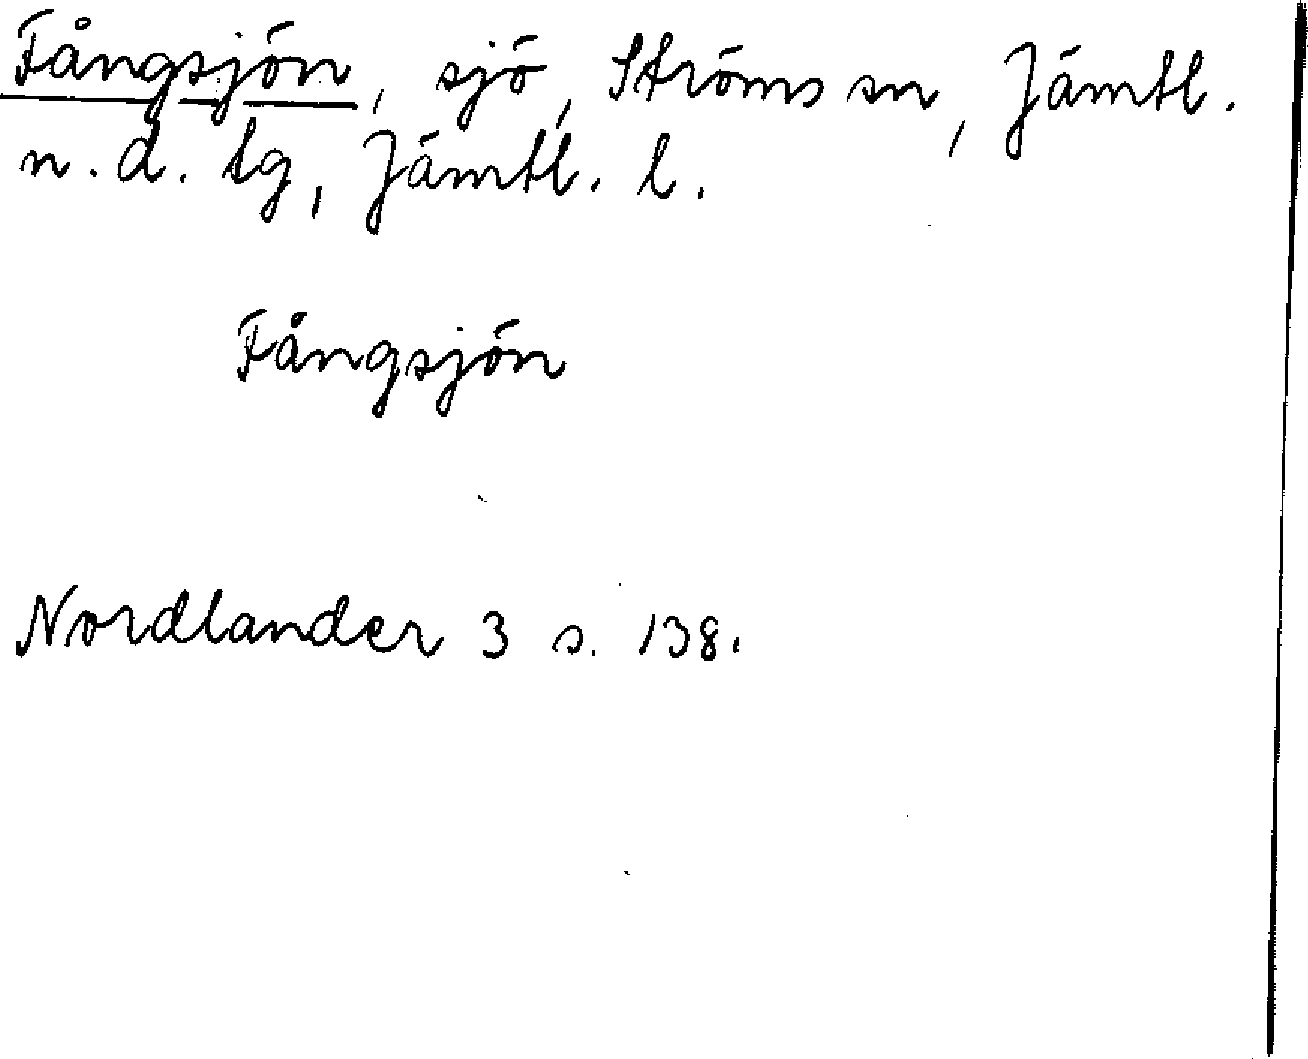 Fångsjön, sjö, Ströms sn, Jämtl.
n. d. tg, Jämtl. l.
Fångsjön
Nordlander 3 s. 138.